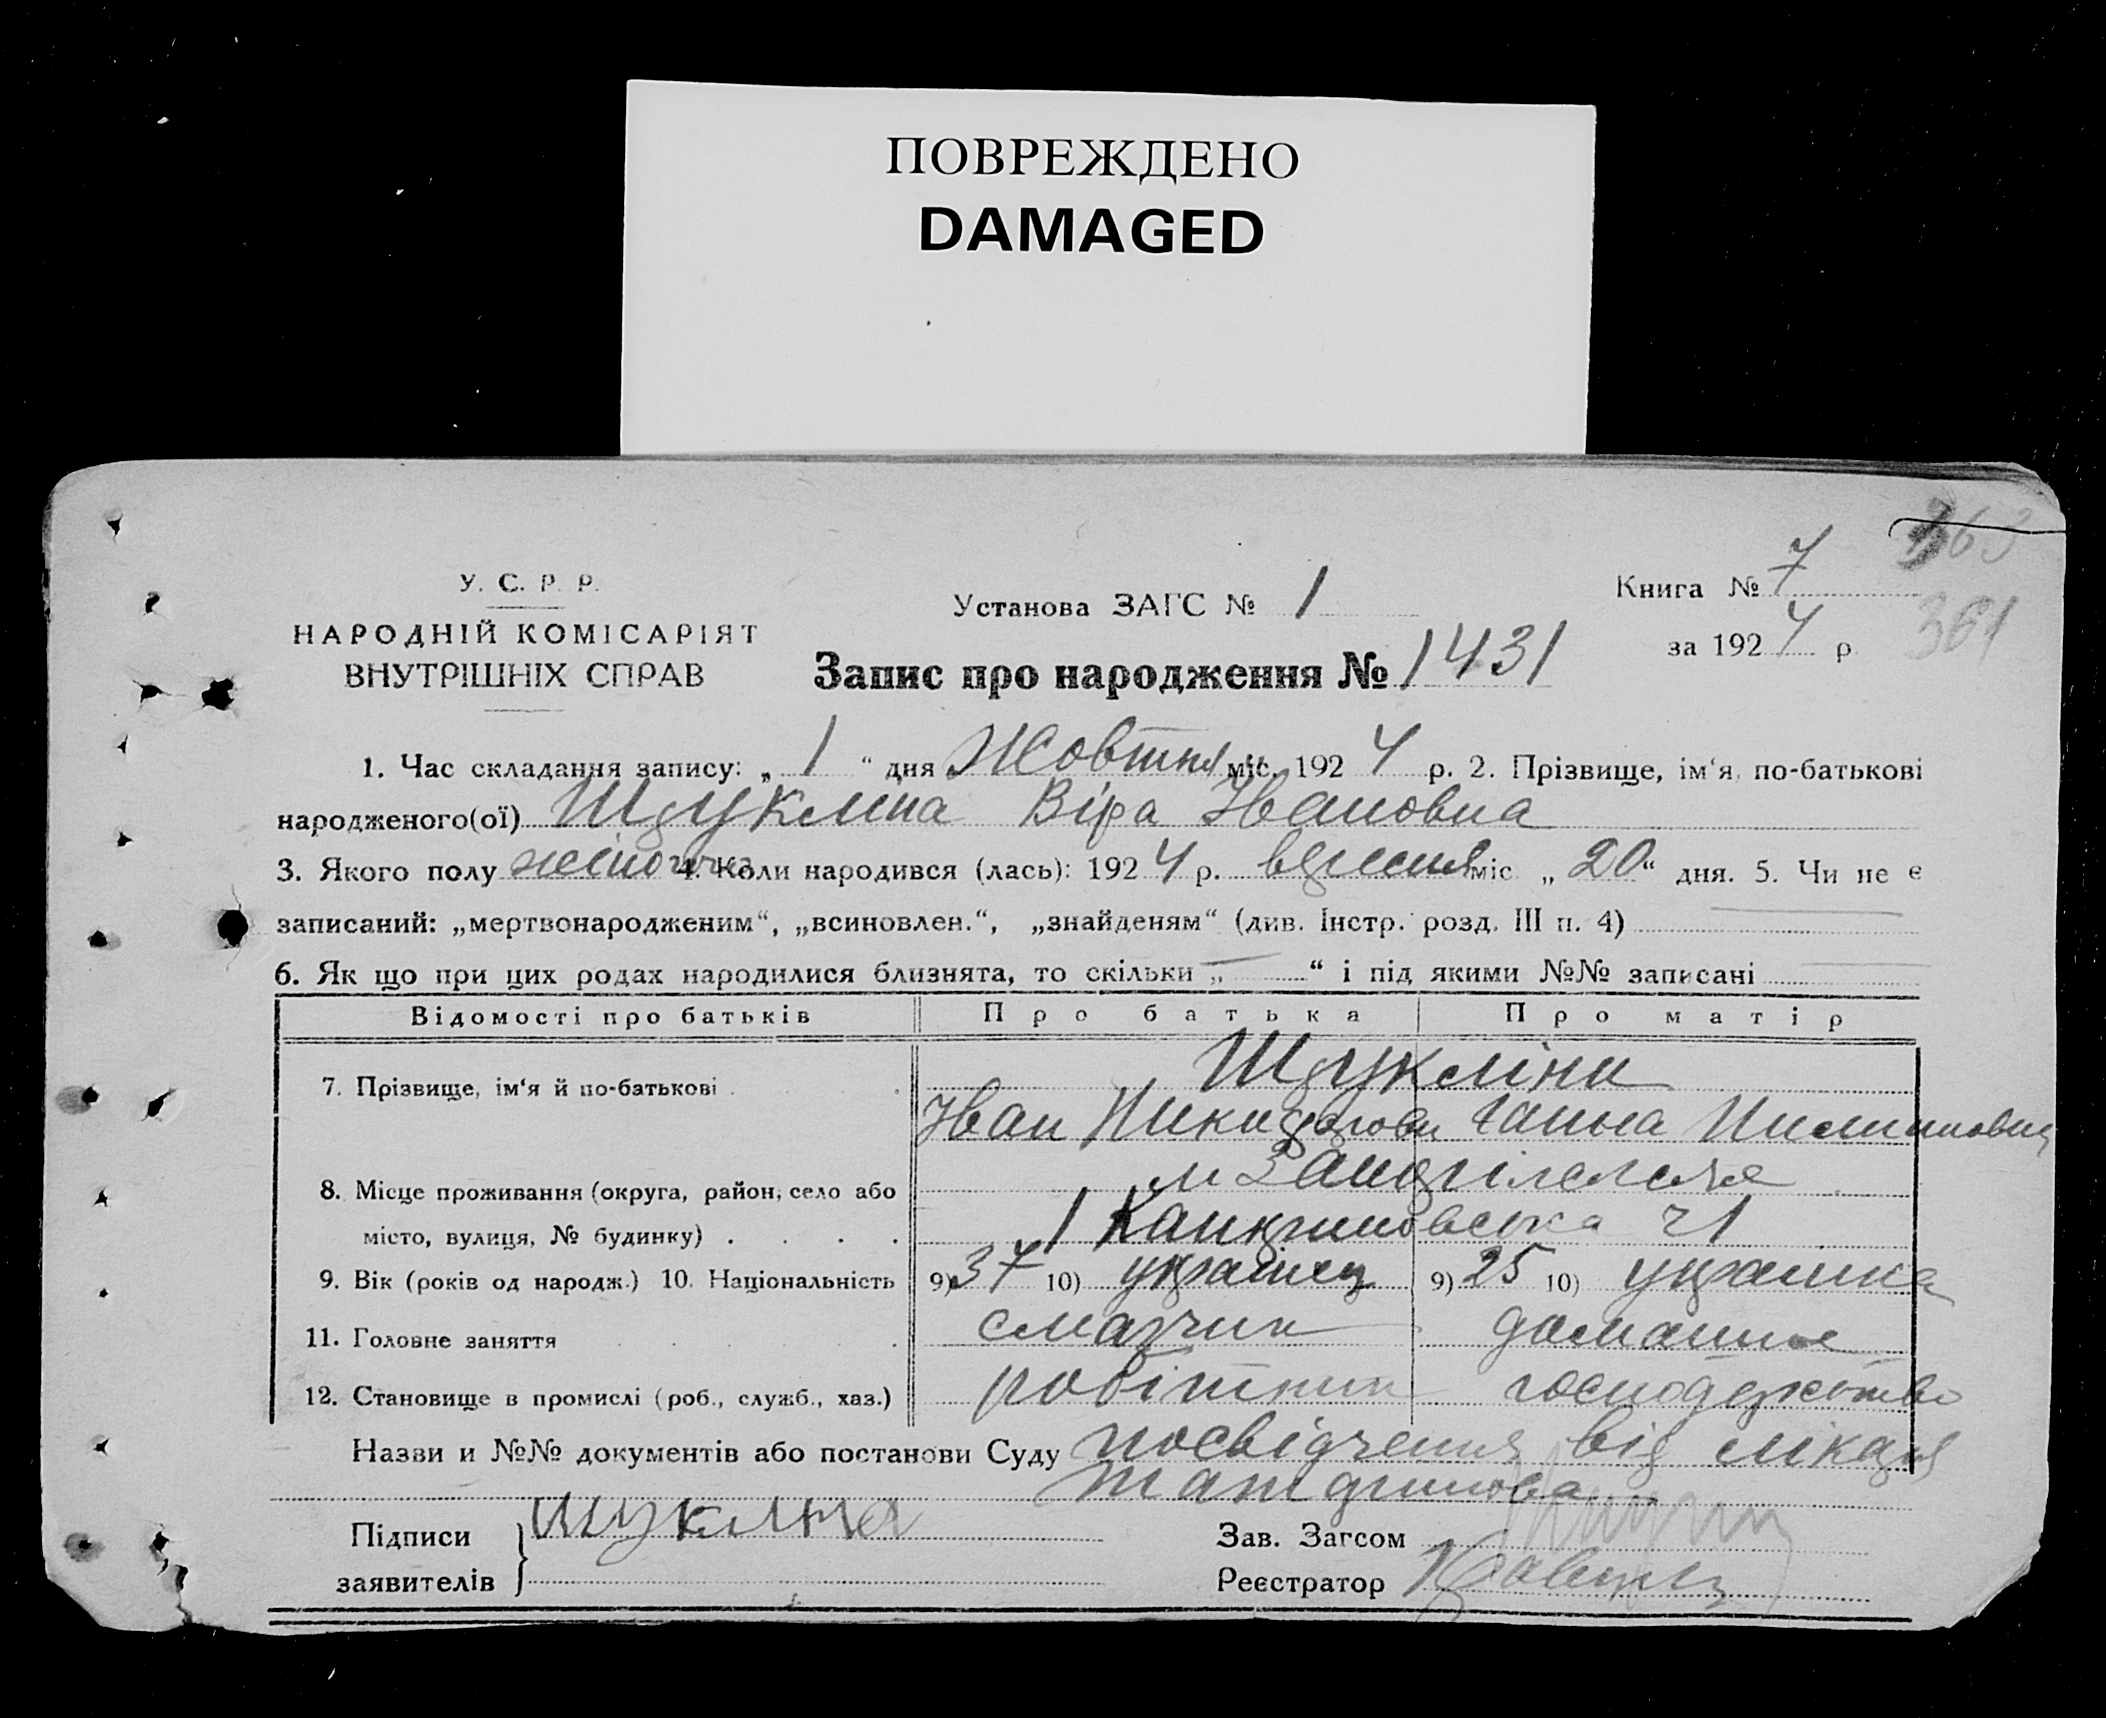 ПОВРЕЖДЕНО
DAMAGED
363
Книга № 7
361
за 1924 р
У. С. Р. Р.
Установа ЗАГС № 1
НАРОДНІЙ КОМІСАРІЯТ
ВНУТРІШНІХ СПРАВ
Запис про народження № 1431
1. Час складання запису: „ 1 “ дня Жовтня міс. 1924 р. 2. Прізвище, ім‘я, по-батькові
народженого(ої) Щукліна Віра Івановна
3. Якого полу жіноча 4. Коли народився (лась): 1924 р. вресня міс „ 20 “ дня. 5. Чи не є
записаний: „мертвонародженим“, „всиновлен.“, „знайденям“ (див. Інстр. розд. III п. 4)
6. Як що при цих родах народилися близнята, то скільки „ — “ і під якими №№ записані
Відомості про батьків Про батька Про матір
7. Прізвище, ім‘я й по-батькові Щукліни
Іван Ганна
8. Місце проживання (округа, район, село або м
місто, вулиця, № будинку) 1
9. Вік (років од народж.) 10. Національність 9) 37 10) українец 9) 25 10) украинка
11. Головне заняття смазчик домашне
12. Становище в промислі (роб., служб., хаз.) робітник господарство
Назви и №№ документів або постанови Суду посвідчення від лікаря
Підписи заявителів Щуклина
Зав. Загсом
Реєстратор